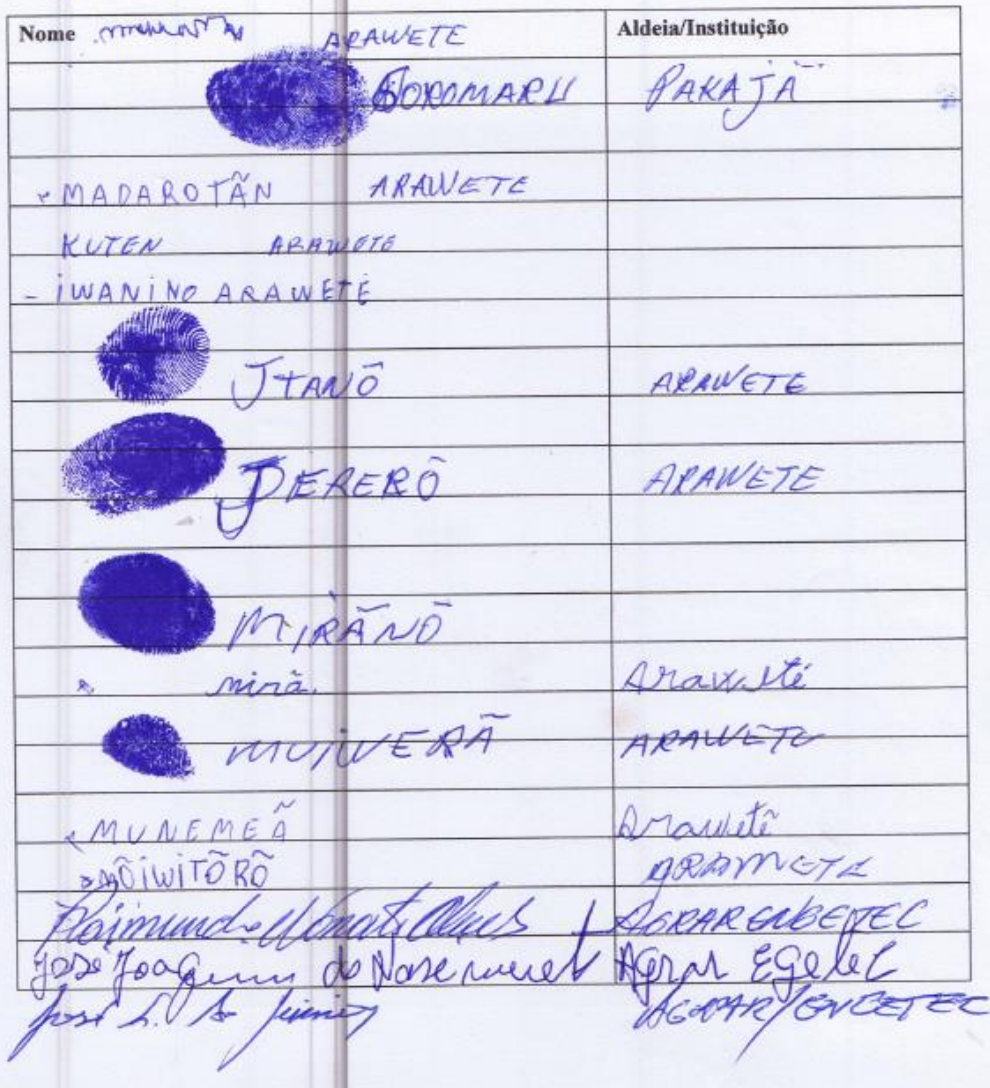 Nome ARAWETE Aldeia/Instituição
SOROMARU PAKAJÃ
MADAROTÃN ARAWETE
KUTEN ARAWETE
- IWANINO ARAWETÉ
JTANÕ ARAWETE
DERERÕ ARAWETE
MIRÃNÕ
mirã. Araweté
MUIWERÃ ARAWETE
MUNEMEÃ Arawetê
ARAWETE
Raimundo Nonato AGRAR ENGETEC
José Joaquim do Nascimento Agrar Egetec
José AGRAR/ENGETEC